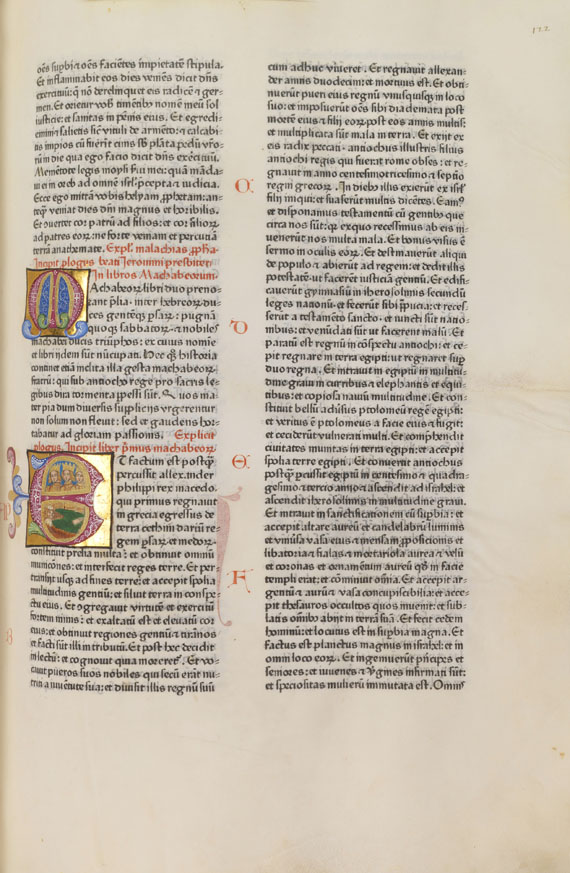 122
oēs supbi ⁊ oēs faciētes impietatē stipula.
Et inflammabit eos dies veniēs dicit dn̄s
exercituū: q̄ nō derelinquet eis radicē ⁊ ger-
men. Et orietur vob̓ timētib⁹ nomē meū sol
iusticie: et sanitas in pēnis eius. Et egredi-
emini ⁊ salietis sic̄ vituli de armēto: ⁊ calcabi-
tis impios cū fuerīt cinis
rū in die qua ego facio dicit dn̄s exercituū.
Memētote legis moysi
ei in oreb ad omnē isrl̓ p̄cepta ⁊ iudicia.
Ecce ego mittā vobis helyam ꝓphetam: an-
teq̄ veniat dies dn̄i magnus et horibilis.
Et cōuertet cor patrū ad filios: et cor filioꝝ
ad patres eoꝝ: ne forte veniam et percutiā
terrā anathemate. Expl̓ malachias ꝓpha.
Incipit ꝓlogus beati Jeronimi presbiteri
In libros Machabeorum
Machabeoꝝ libri duo preno-
tant plia. inter hebreoꝝ du-
ces gentēq̄ ꝑsaꝝ: pugnā
quoq̄ sabbatoꝝ ⁊ nobiles
machabei ducis triūphos: ex cuius nomie
et libri idem sūt nūcupati. Hec q̄ historia
continet etiā inclita illa gesta machabeoꝝ
fratrū: qui sub antiocho rege pro sacris le-
gibus dira tormenta ꝑpessi sūt. Quos ma-
ter pia dum diuersis suppliciis vrgerentur
non solum non fleuit: sed et gaudens hor-
tabatur ad gloriam passionis. Explicit
ꝓlogus. Incipit liber p̄mus machabeoꝝ.
Et factum est postq̄
percussit allexander
philippi rex macedo.
qui primus regnauit
in grecia egressus de
terra cethim dariū re-
gem ꝑsaꝝ et medoꝝ.
constituit prelia multa: et obtinuit omniū
municōnes: et interfecit reges terre. Et per-
transijt usq̄ ad fines terre: et accepit spolia
multitudinis gentiū: et siluit terra in conspe-
ctu eius. Et ꝯgregauit virtutē et exercitū
fortem nimis: et exaltatū est et eleuatū cor
eius: et obtinuit regiones gentiū et tirānos
et facti sūt illi in tributū. Et post hec decidit
in lectū: et cognouit quia moreret̓. Et vo-
cauit pueros suos nobiles qui secū erāt nu-
triti a iuuentute sua: et diuisit illis regnū suū
cum adhuc viueret. Et regnauit allexan-
der annis duodecim: et mortuus est. Et obti-
nuerūt pueri eius regnū vnusquisq̄ in loco
suo: et imposuerūt oēs sibi diademata post
mortē eius ⁊ filij eoꝝ post eos annis multis:
et multiplicata sūt mala in terra. Et exijt ex
eis radix peccati. antiochus illustris filius
antiochi regis qui fuerat rome obses: et re-
gnauit in anno centesimotricesimo ⁊ septio
regni grecoꝝ. In dieb⁹ illis exierūt ex isrl̓
filij iniqui: et suaserūt multis dicētes. Eam⁹
et disponamus testamētū cū gentib⁹ que
circa nos sūt: q̄ exquo recessimus ab eis in-
uenerūt nos multa mala. Et bonus visus ē
sermo in oculis eoꝝ. Et destinauerūt aliqui
de populo ⁊ abierūt ad regem: et dedit illis
potestatē. ut facerēt iusticiā gentiū. Et edifi-
cauerūt gymnasiū in iherosolimis secundū
leges nationū: et fecerūt sibi ꝓpucia: et reces-
serūt a testamēto sancto. et iuncti sūt natio-
nibus: et venūdati sūt ut facerent malū. Et
paratū est regnū in cōspectu antiochi: et ce-
pit regnare in terra egipti: ut regnaret sup
duo regna. Et intrauit in egiptū in multitu-
dine graui in curribus ⁊ elephantis et equi-
tibus: et copiosa nauiū multitudine. Et con-
stituit bellū aduersus ptolomeū regē egipti:
et veritus ē ptolomeus a facie eius ⁊ fugit:
et ceciderūt vulnerati multi. Et comphendit
ciuitates munitas in terra egipti: et accepit
spolia terre egipti. Et conuertit antiochus
postq̄ percussit egiptū in centesimo ⁊ quadra-
gesimo ⁊ tercio anno: ⁊ ascendit ad israhel: et
ascendit iherosolimis in multitudine graui.
Et intrauit in sanctificationem cū supbia: et
accepit altare aureū et candelabrū luminis
et vniuersa vasa eius ⁊ mensam ꝓposicionis et
libatoria: ⁊ fialas ⁊ mortariola aurea ⁊ velū
et coronas et ornamentū aureū qd̓ in facie
templi erat: et cōminuit omīa. Et accepit ar-
gentū ⁊ aurū ⁊ vasa concupiscibilia: et acce-
pit thesauros occultos quos inuenit: et sub-
latis omīb⁹ abijt in terrā suā. Et fecit cedem
hominū: et locutus est in supbia magna. Et
factus est planctus magnus in israhel: et in
omni loco eoꝝ. Et ingemuerūt p̄ncipes et
seniores: et iuuenes ⁊ v̓gines infirmati sūt:
et speciositas mulierū immutata est. Omnis